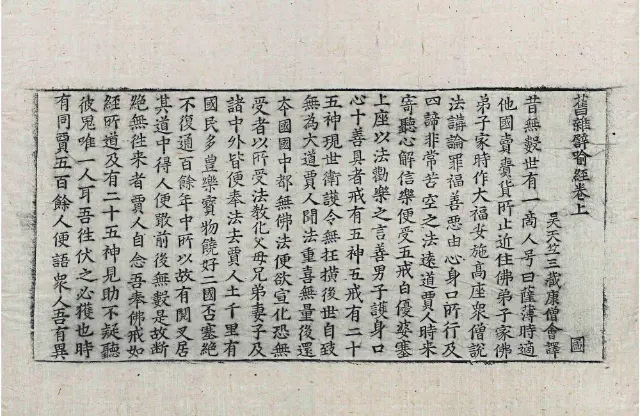 舊雜譬喻經卷上
吳天竺三藏康僧會譯 國
昔無數世有一商人号曰薩薄時適
他國賣賫貨所止近住佛弟子家佛
弟子家時作大福安施高座衆僧說
法講論罪福善悪由心身口所行及
四諦非常苦空之法遠道賈人時来
寄聽心解信樂便受五戒白優婆塞
上座以法勸樂之言善男子護身口
心十善具者戒有五神五戒有二十
五神現世衛護令無狂撗後世自致
無為大道賈人聞法重喜無量後還
夲國國中都無佛法便欲宣化恐無
受者以所受法教化父母兄弟妻子及
諸中外皆便奉法去賈人土千里有
國民多豊樂寳物饒好二國否塞絶
不復通百餘年中所以故有閱叉居
其道中得人便噉前後無數是故断
絶無徃来者賈人自念吾奉佛戒如
經所道及有二十五神見助不疑聽
彼鬼唯一人耳吾徃伏之必獲也時
有同賈五百餘人便語衆人吾有異